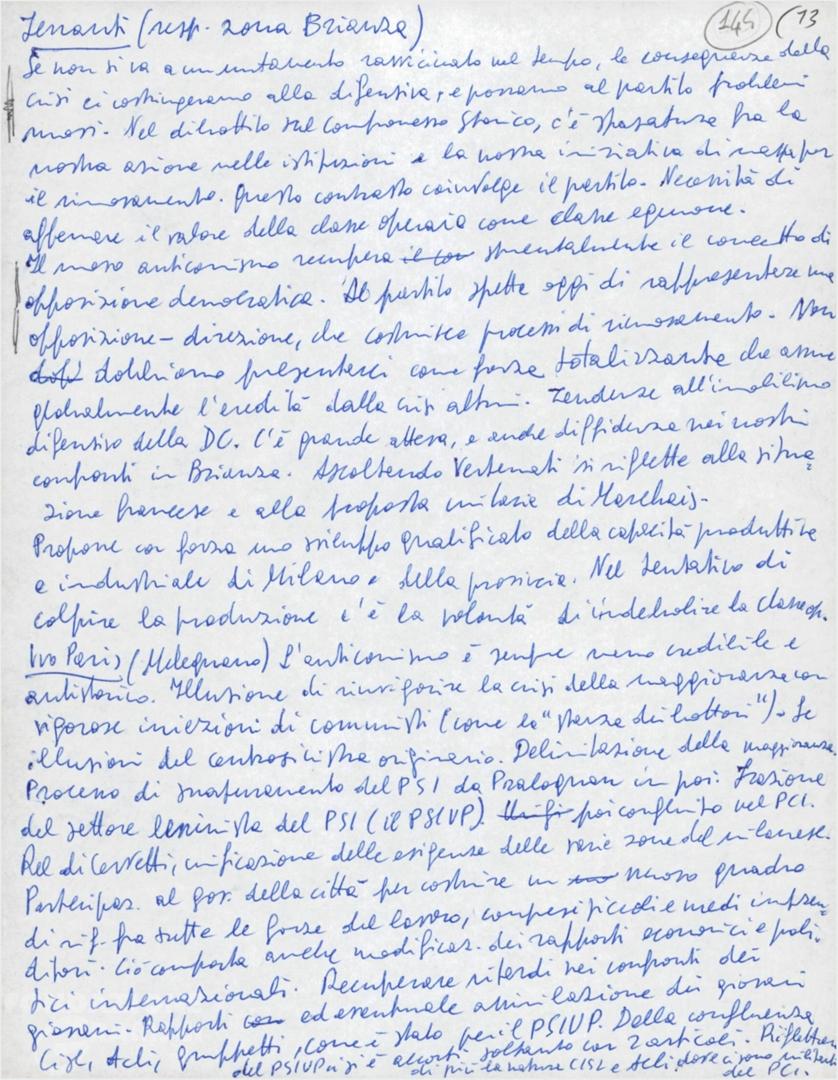 Terranti (resp. zona Brianza) 145 (13
Se non si va a un mutamento ravvicinato nel tempo, le conseguenze della
crisi ci costringeranno alla difensiva, e possano al partito problemi
nuovi. Nel dibattito sul compromesso storico, c'è sfasatura fra la
nostra azione nelle istituzioni e la nostra iniziativa di massa per
il rinnovamento. Questo contrasto coinvolge il partito. Necessità di
affermare il valore della classe operaia come classe egemone.
Il nuovo anticomunismo recupera il con strumentalmente il concetto di
opposizione democratica. Al partito spetta oggi di rappresentare una
opposizione-direzione, che costruisca processi di rinnovamento. Non
dobb dobbiamo presentarci come forza totalizzante che assume
globalmente l'eredità dalla crisi altrui. Tendenze all'immobilismo
difensivo della DC. C'è grande attesa, e anche diffidenza nei nostri
confronti in Brianza. Ascoltando Vertemati si riflette alla situa=
zione francese e alla proposta unitaria di Marchais.
Propone con forza uno sviluppo qualificato della capacità produttiva
e industriale di Milano e della provincia. Nel tentativo di
colpire la produzione c'è la volontà di indebolire la classe op.
Ivo Paris (Melegnano) L'anticomunismo è sempre meno credibile e
antistorico. Illusione di rinvigorire la crisi della maggioranza con
vigorose iniezioni di comunisti (come la "stanza dei bottoni"). Le
illusioni del centrosinistra originario. Delimitazione della maggioranza.
Processo di snaturamento del PSI da Pralognan in poi. Frazione
del settore leninista del PSI (il PSIUP) poi confluito nel PCI.
Rel di Cervetti, unificazione delle esigenze delle varie zone del milanese.
Partecipaz. al gov. della città per costruire un nuovo quadro
di rif. fra tutte le forze del lavoro, compresi piccoli e medi impren=
ditori. Ciò comporta anche modificaz. dei rapporti economici e poli=
tici internazionali. Recuperare ritardi nei confronti dei
giovani. Rapporti con ed eventuale assimilazione dei giovani
Cisl, Acli, gruppetti, come è stato per il PSIUP. Della confluenza
del PSIUP ci si è accorti soltanto con 2 articoli. Riflettere
di più la natura CISL e Acli, dove ci sono militanti
del PCI.